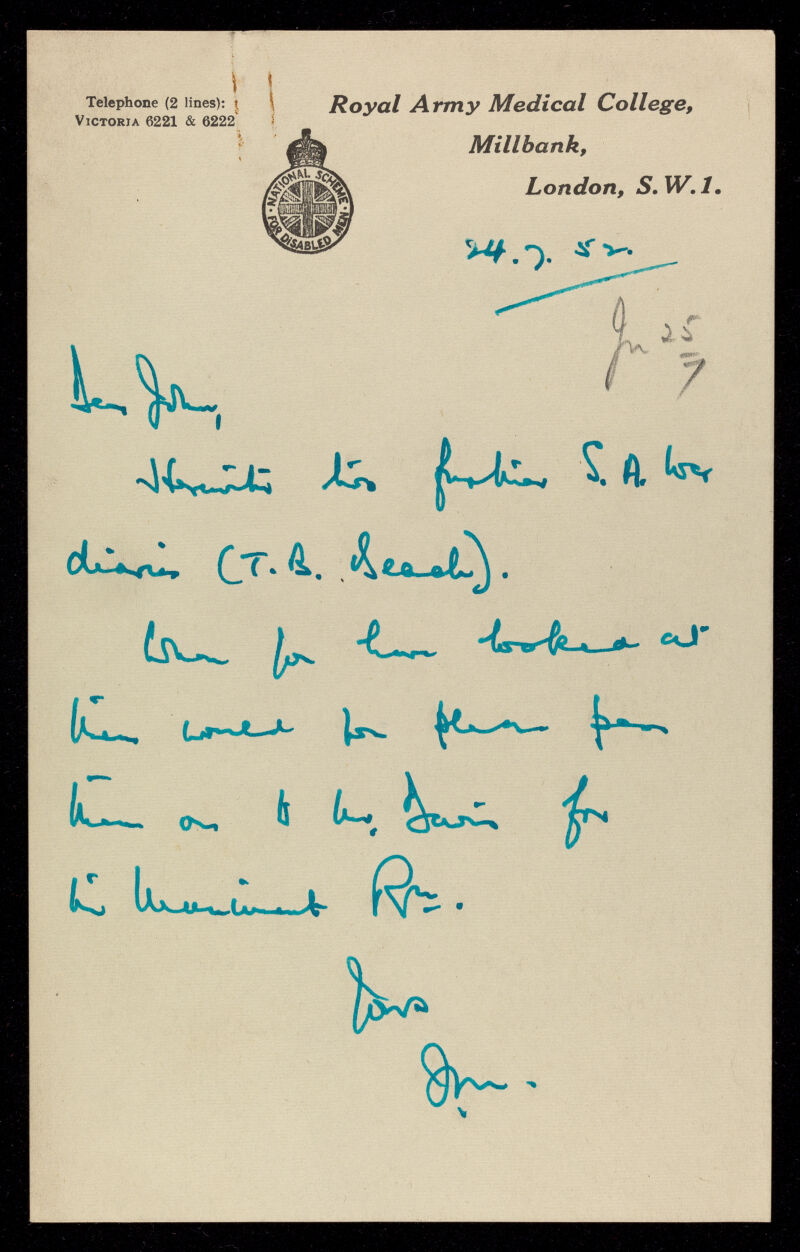 Telephone (2 lines):
VICTORIA 6221 & 6222
Royal Army Medical College,
Millbank,
London, S.W.1.
NATIONAL SCHEME
FOR DISABLED MEN
24.7.52.
25
7
Dear John,
Herewith two further S.A. War
diaries (T.B. Beach).
When you have looked at
them would you please pass
them on to Mr. Davis for
his Muniment Rm.
Yours